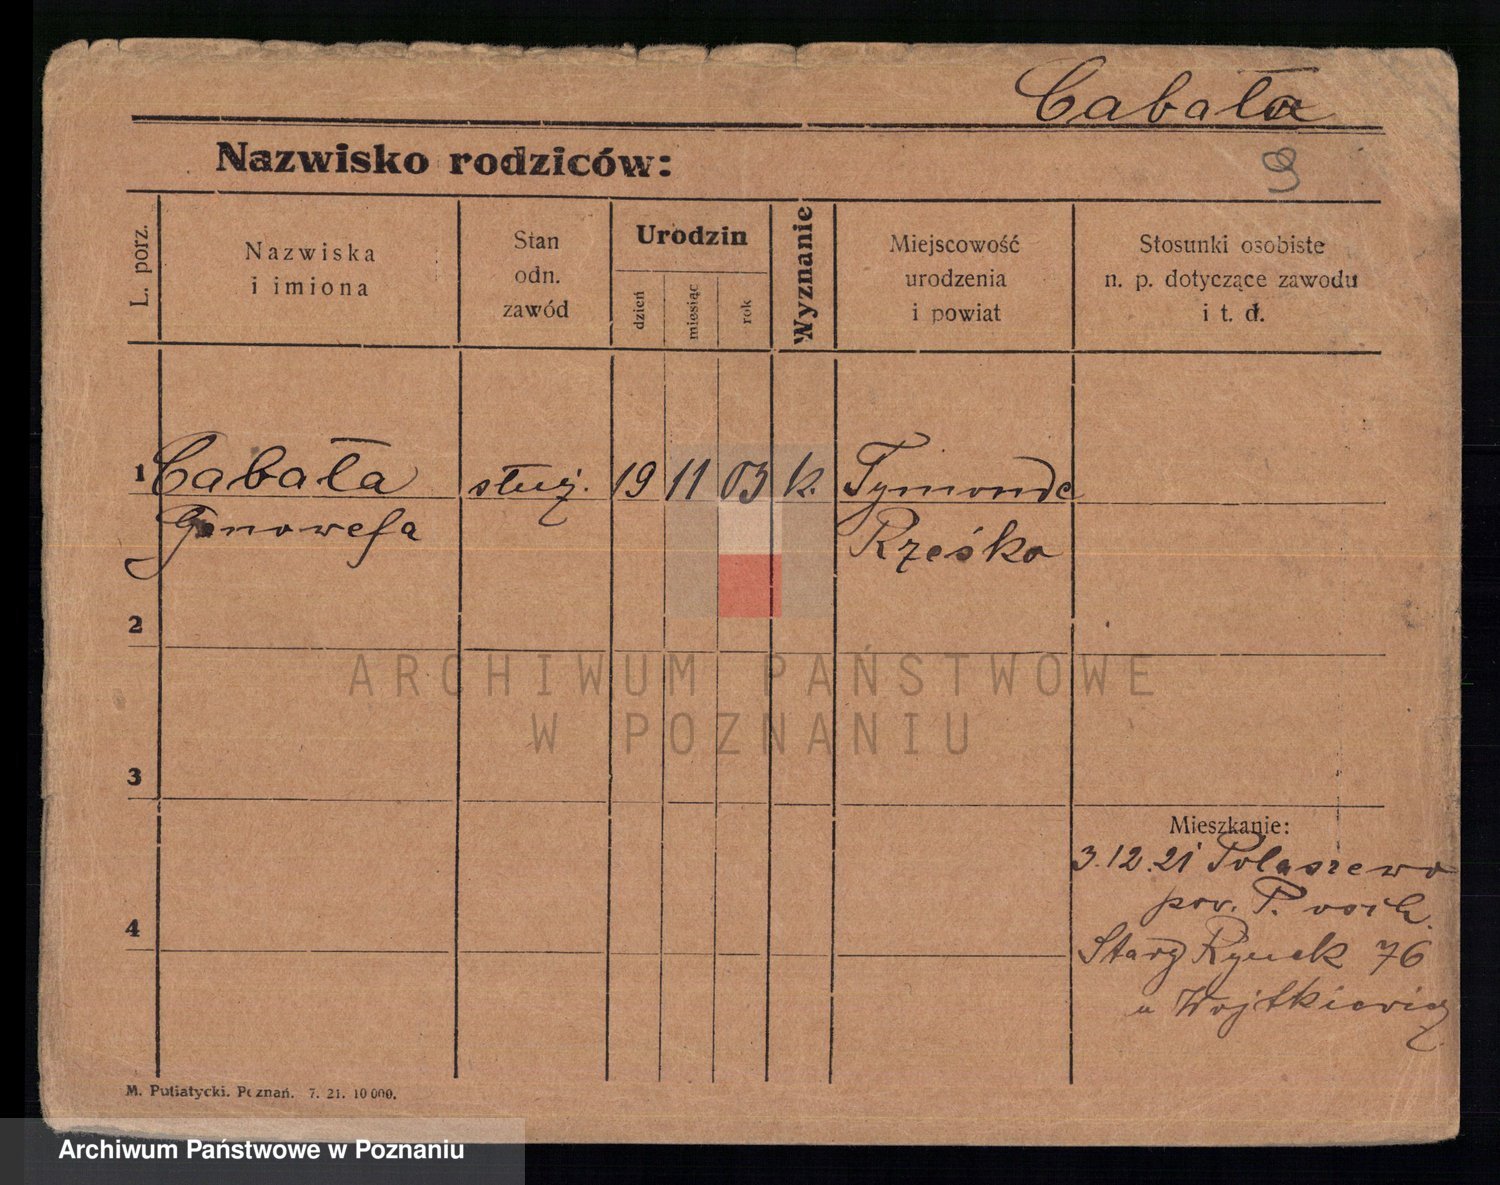 Cabała
9
Nazwisko rodziców:
L. porz.
Nazwiska
i imiona
Stan
odn.
zawód
Urodzin
dzień
miesiąc
rok
Wyznanie
Miejscowość
urodzenia
i powiat
Stosunki osobiste
n. p. dotyczące zawodu
i t. d.
1 Cabała służ. 19 11 03 k.
Genowefa Rzesko
2
3
4
Mieszkanie:
3.12.21
pow.
Stary Rynek 76
u Wojtkiewicz
M. Putiatycki. Poznań. 7. 21. 10 000.
ARCHIWUM PAŃSTWOWE
W POZNANIU
Archiwum Państwowe w Poznaniu